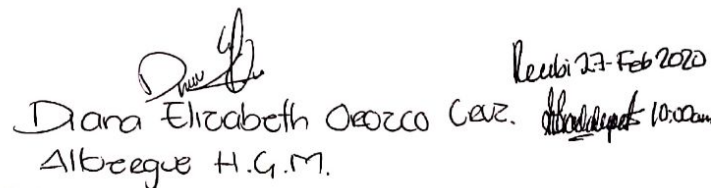 Recibi 27-Feb 2020
Diana Elizabeth Orozco Cruz. 10:00am
Albergue H.G.M.